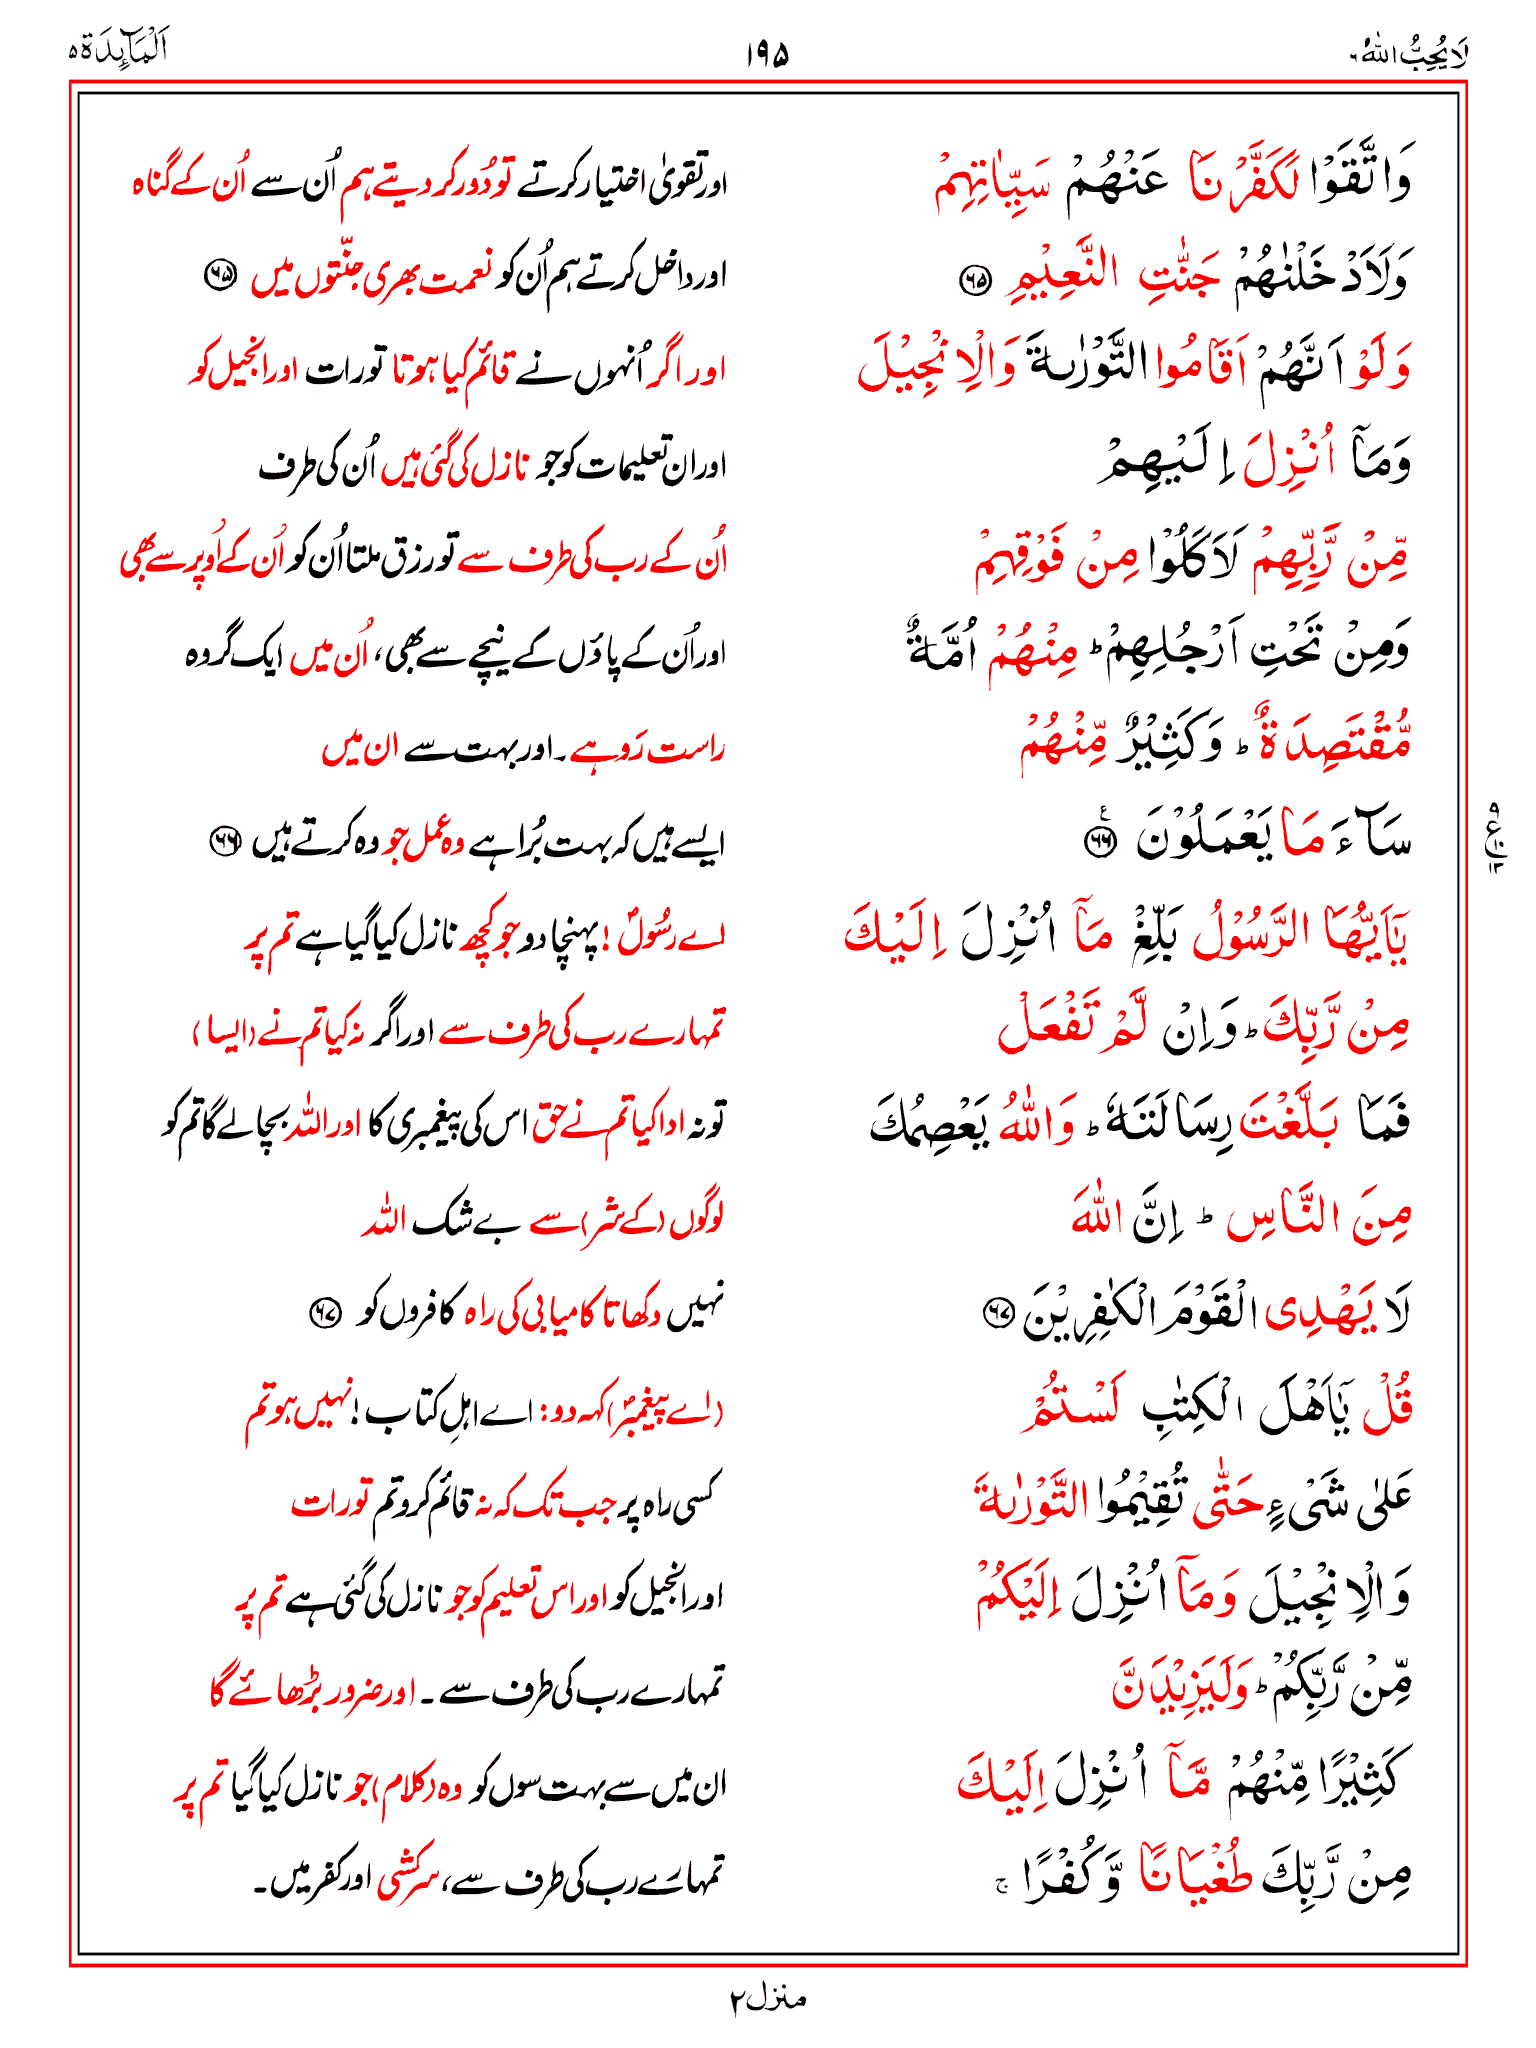 لَا يُحِبُّ اللّٰهُ ۶
۱۹۵
اَلْمَآئِدَة ۵
وَاتَّقَوْا لَكَفَّرْنَا عَنْهُمْ سَيِّاٰتِهِمْ اور تقویٰ اختیار کرتے تو دُور کر دیتے ہم اُن سے اُن کے گناہ
وَلَاَدْخَلْنٰهُمْ جَنّٰتِ النَّعِيْمِ ﴿۶۵﴾ اور داخل کرتے ہم اُن کو نعمت بھری جنّتوں میں ﴿۶۵﴾
وَلَوْ اَنَّهُمْ اَقَامُوا التَّوْرٰىةَ وَالْاِنْجِيْلَ اور اگر اُنہوں نے قائم کیا ہوتا تورات اور انجیل کو
وَمَآ اُنْزِلَ اِلَيْهِمْ اور ان تعلیمات کو جو نازل کی گئی ہیں اُن کی طرف
مِّنْ رَّبِّهِمْ لَاَكَلُوْا مِنْ فَوْقِهِمْ اُن کے رب کی طرف سے تو رزق ملتا اُن کو اُن کے اُوپر سے بھی
وَمِنْ تَحْتِ اَرْجُلِهِمْ ؕ مِنْهُمْ اُمَّةٌ اور اُن کے پاؤں کے نیچے سے بھی، اُن میں ایک گروہ
مُّقْتَصِدَةٌ ؕ وَكَثِيْرٌ مِّنْهُمْ راست رَو ہے۔ اور بہت سے ان میں
سَآءَ مَا يَعْمَلُوْنَ ﴿۶۶﴾ ایسے ہیں کہ بہت بُرا ہے وہ عمل جو وہ کرتے ہیں ﴿۶۶﴾
يٰٓاَيُّهَا الرَّسُوْلُ بَلِّغْ مَآ اُنْزِلَ اِلَيْكَ اے رسُولؐ! پہنچا دو جو کچھ نازل کیا گیا ہے تم پر
مِنْ رَّبِّكَ ؕ وَاِنْ لَّمْ تَفْعَلْ تمہارے رب کی طرف سے اور اگر نہ کیا تم نے (ایسا)
فَمَا بَلَّغْتَ رِسَالَتَهٗ ؕ وَاللّٰهُ يَعْصِمُكَ تو نہ ادا کیا تم نے حق اس کی پیغمبری کا اور اللہ بچالے گا تم کو
مِنَ النَّاسِ ؕ اِنَّ اللّٰهَ لوگوں (کے شر) سے بے شک اللہ
لَا يَهْدِى الْقَوْمَ الْكٰفِرِيْنَ ﴿۶۷﴾ نہیں دکھاتا کامیابی کی راہ کافروں کو ﴿۶۷﴾
قُلْ يٰٓاَهْلَ الْكِتٰبِ لَسْتُمْ (اے پیغمبرؐ) کہہ دو: اے اہلِ کتاب! نہیں ہو تم
عَلٰى شَىْءٍ حَتّٰى تُقِيْمُوا التَّوْرٰىةَ کسی راہ پر جب تک کہ نہ قائم کرو تم تورات
وَالْاِنْجِيْلَ وَمَآ اُنْزِلَ اِلَيْكُمْ اور انجیل کو اور اس تعلیم کو جو نازل کی گئی ہے تم پر
مِّنْ رَّبِّكُمْ ؕ وَلَيَزِيْدَنَّ تمہارے رب کی طرف سے۔ اور ضرور بڑھائے گا
كَثِيْرًا مِّنْهُمْ مَّآ اُنْزِلَ اِلَيْكَ ان میں سے بہت سوں کو وہ (کلام) جو نازل کیا گیا تم پر
مِنْ رَّبِّكَ طُغْيَانًا وَّكُفْرًا ۚ تمہارے رب کی طرف سے، سرکشی اور کفر میں۔
منزل ۲